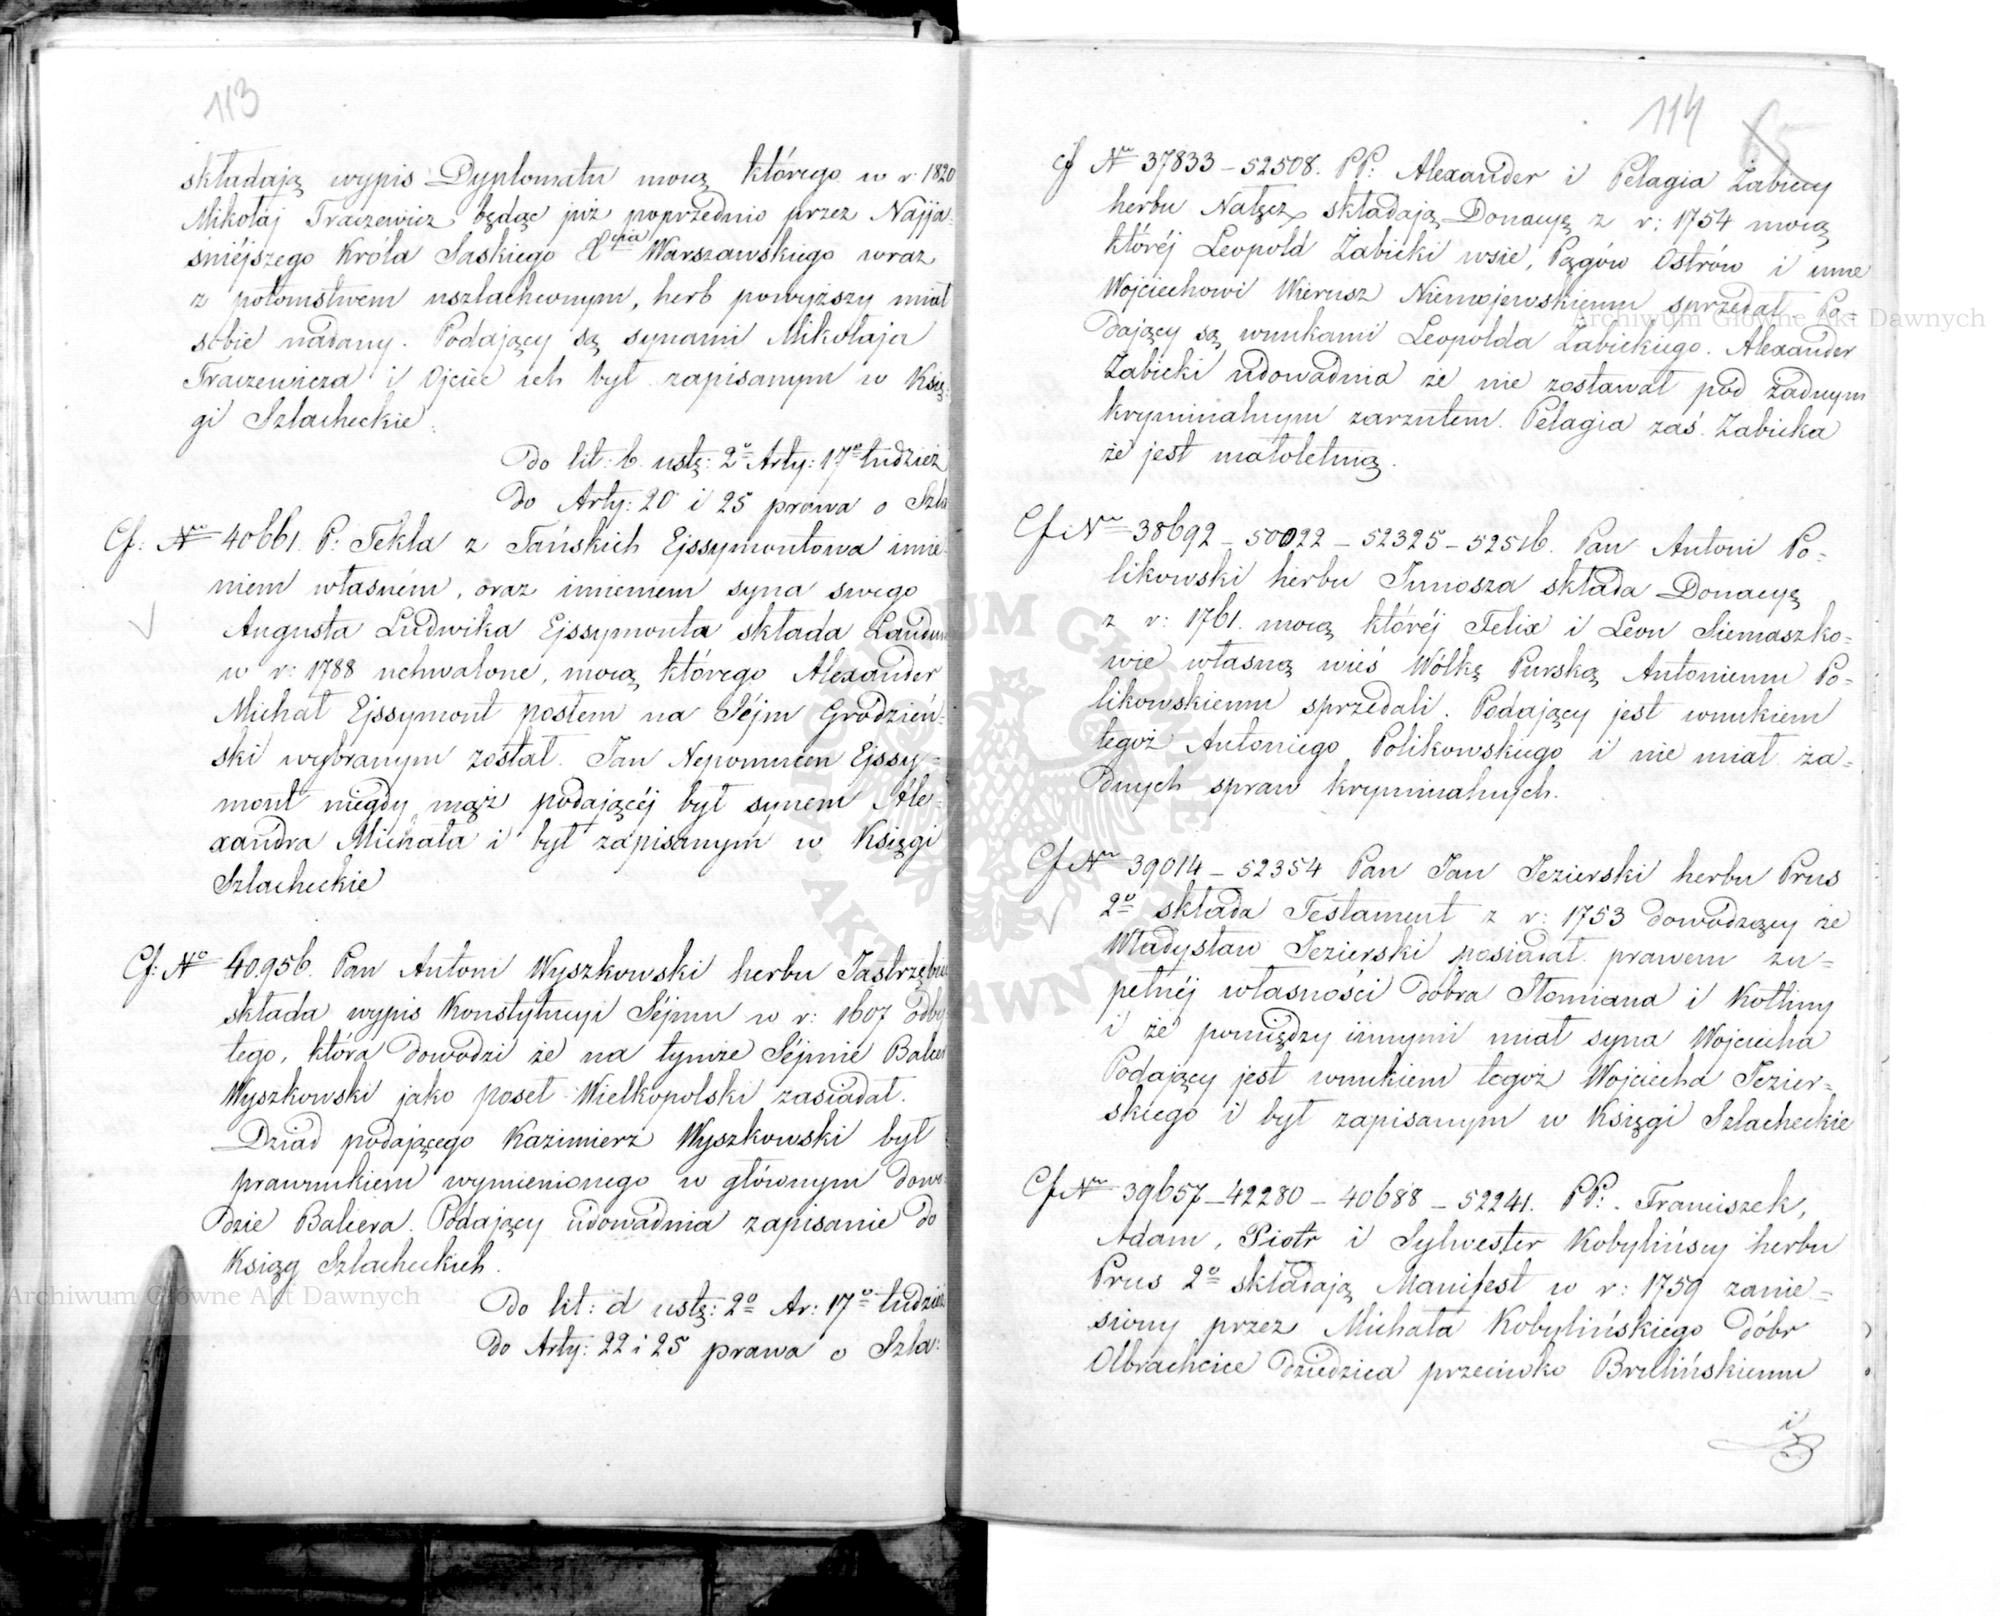 113
składają wypis Dyplomatu mocą którego w r: 1820
Mikołaj Traczewicz będąc już poprzednio przez Najja-
śniéjszego Króla Saskiego Xcia Warszawskiego wraz
z potomstwem uszlachconym, herb powyższy miał
sobie nadany. Podający są synami Mikołaja
Traczewicza i Ojciec ich był zapisanym w Księ-
gi Szlacheckie.
Do lit: b. ustę: 2º Arty: 17º tudzież
Do Arty: 20 i 25 prawa o Szla
Cf: Nro 40661. P: Tekla z Tańskich Ejssymontowa imie-
niem własném, oraz imieniem syna swego
Augusta Ludwika Ejssymonta składa Laudum
w r: 1788 uchwalone, mocą którego Alexander
Michał Ejssymont posłem na Séjm Grodzień-
ski wybranym został. Jan Nepomucen Ejssy-
mont niegdy mąż podającéj był synem Ale-
xandra Michała i był zapisanym w Księgi
Szlacheckie
Cf: No 40956. Pan Antoni Wyszkowski herbu Jastrzębiec
składa wypis Konstytucyi Séjmu w r: 1607 odby
tego, która dowodzi że na tymże Séjmie Balcer
Wyszkowski jako poseł Wielkopolski zasiadał.
Dziad podającego Kazimierz Wyszkowski był
prawnukiem wymienionego w głównym dowo
dzie Balcera. Podający udowadnia zapisanie do
Ksiąg Szlacheckich.
Do lit: d ustę: 2º Ar: 17º tudzież
Do Arty: 22 i 25 prawa o Szla:
114 65
Cf Nro 37833 - 52508. PP: Alexander i Pelagia Żabiccy
herbu Nałęcz składają Donacyę z r: 1754 mocą
któréj Leopold Żabicki wsie, Pągów Ostrów i inne
Wojciechowi Wierusz Niemojewskiemu sprzedał. Po-
dający są wnukami Leopolda Żabickiego. Alexander
Żabicki udowadnia że nie zostawał pod żadnym
kryminalnym zarzutem. Pelagia zaś Żabicka
że jest małoletnią.
Cf: Nro 38692 - 50022 - 52325 - 52516. Pan Antoni Po-
likowski herbu Junosza składa Donacyę
z r: 1761. mocą któréj Felix i Leon Siemaszko-
wie własną wieś Wólkę Purską Antoniemu Po-
likowskiemu sprzedali. Podający jest wnukiem
tegoż Antoniego Polikowskiego i nie miał ża-
dnych spraw kryminalnych.
Cf: Nro 39014 - 52354 Pan Jan Jezierski herbu Prus
2º składa Testament z r: 1753 dowodzący że
Władysław Jezierski posiadał prawem zu-
pełnéj własności dobra Słomiana i Kotliny
i że pomiędzy innymi miał syna Wojciecha
Podający jest wnukiem tegoż Wojciecha Jezier-
skiego i był zapisanym w Księgi Szlacheckie
Cf: Nro 39657 - 42280 - 40688 - 52241. PP: Franciszek,
Adam, Piotr i Sylwester Kobylińscy herbu
Prus 2º składają Manifest w r: 1759 zanie-
siony przez Michała Kobylińskiego dóbr
Olbrachcice dziedzica przeciwko Brzelińskiemu
i
Archiwum Główne Akt Dawnych
Archiwum Główne Akt Dawnych
ARCHIWUM GŁÓWNE AKT DAWNYCH